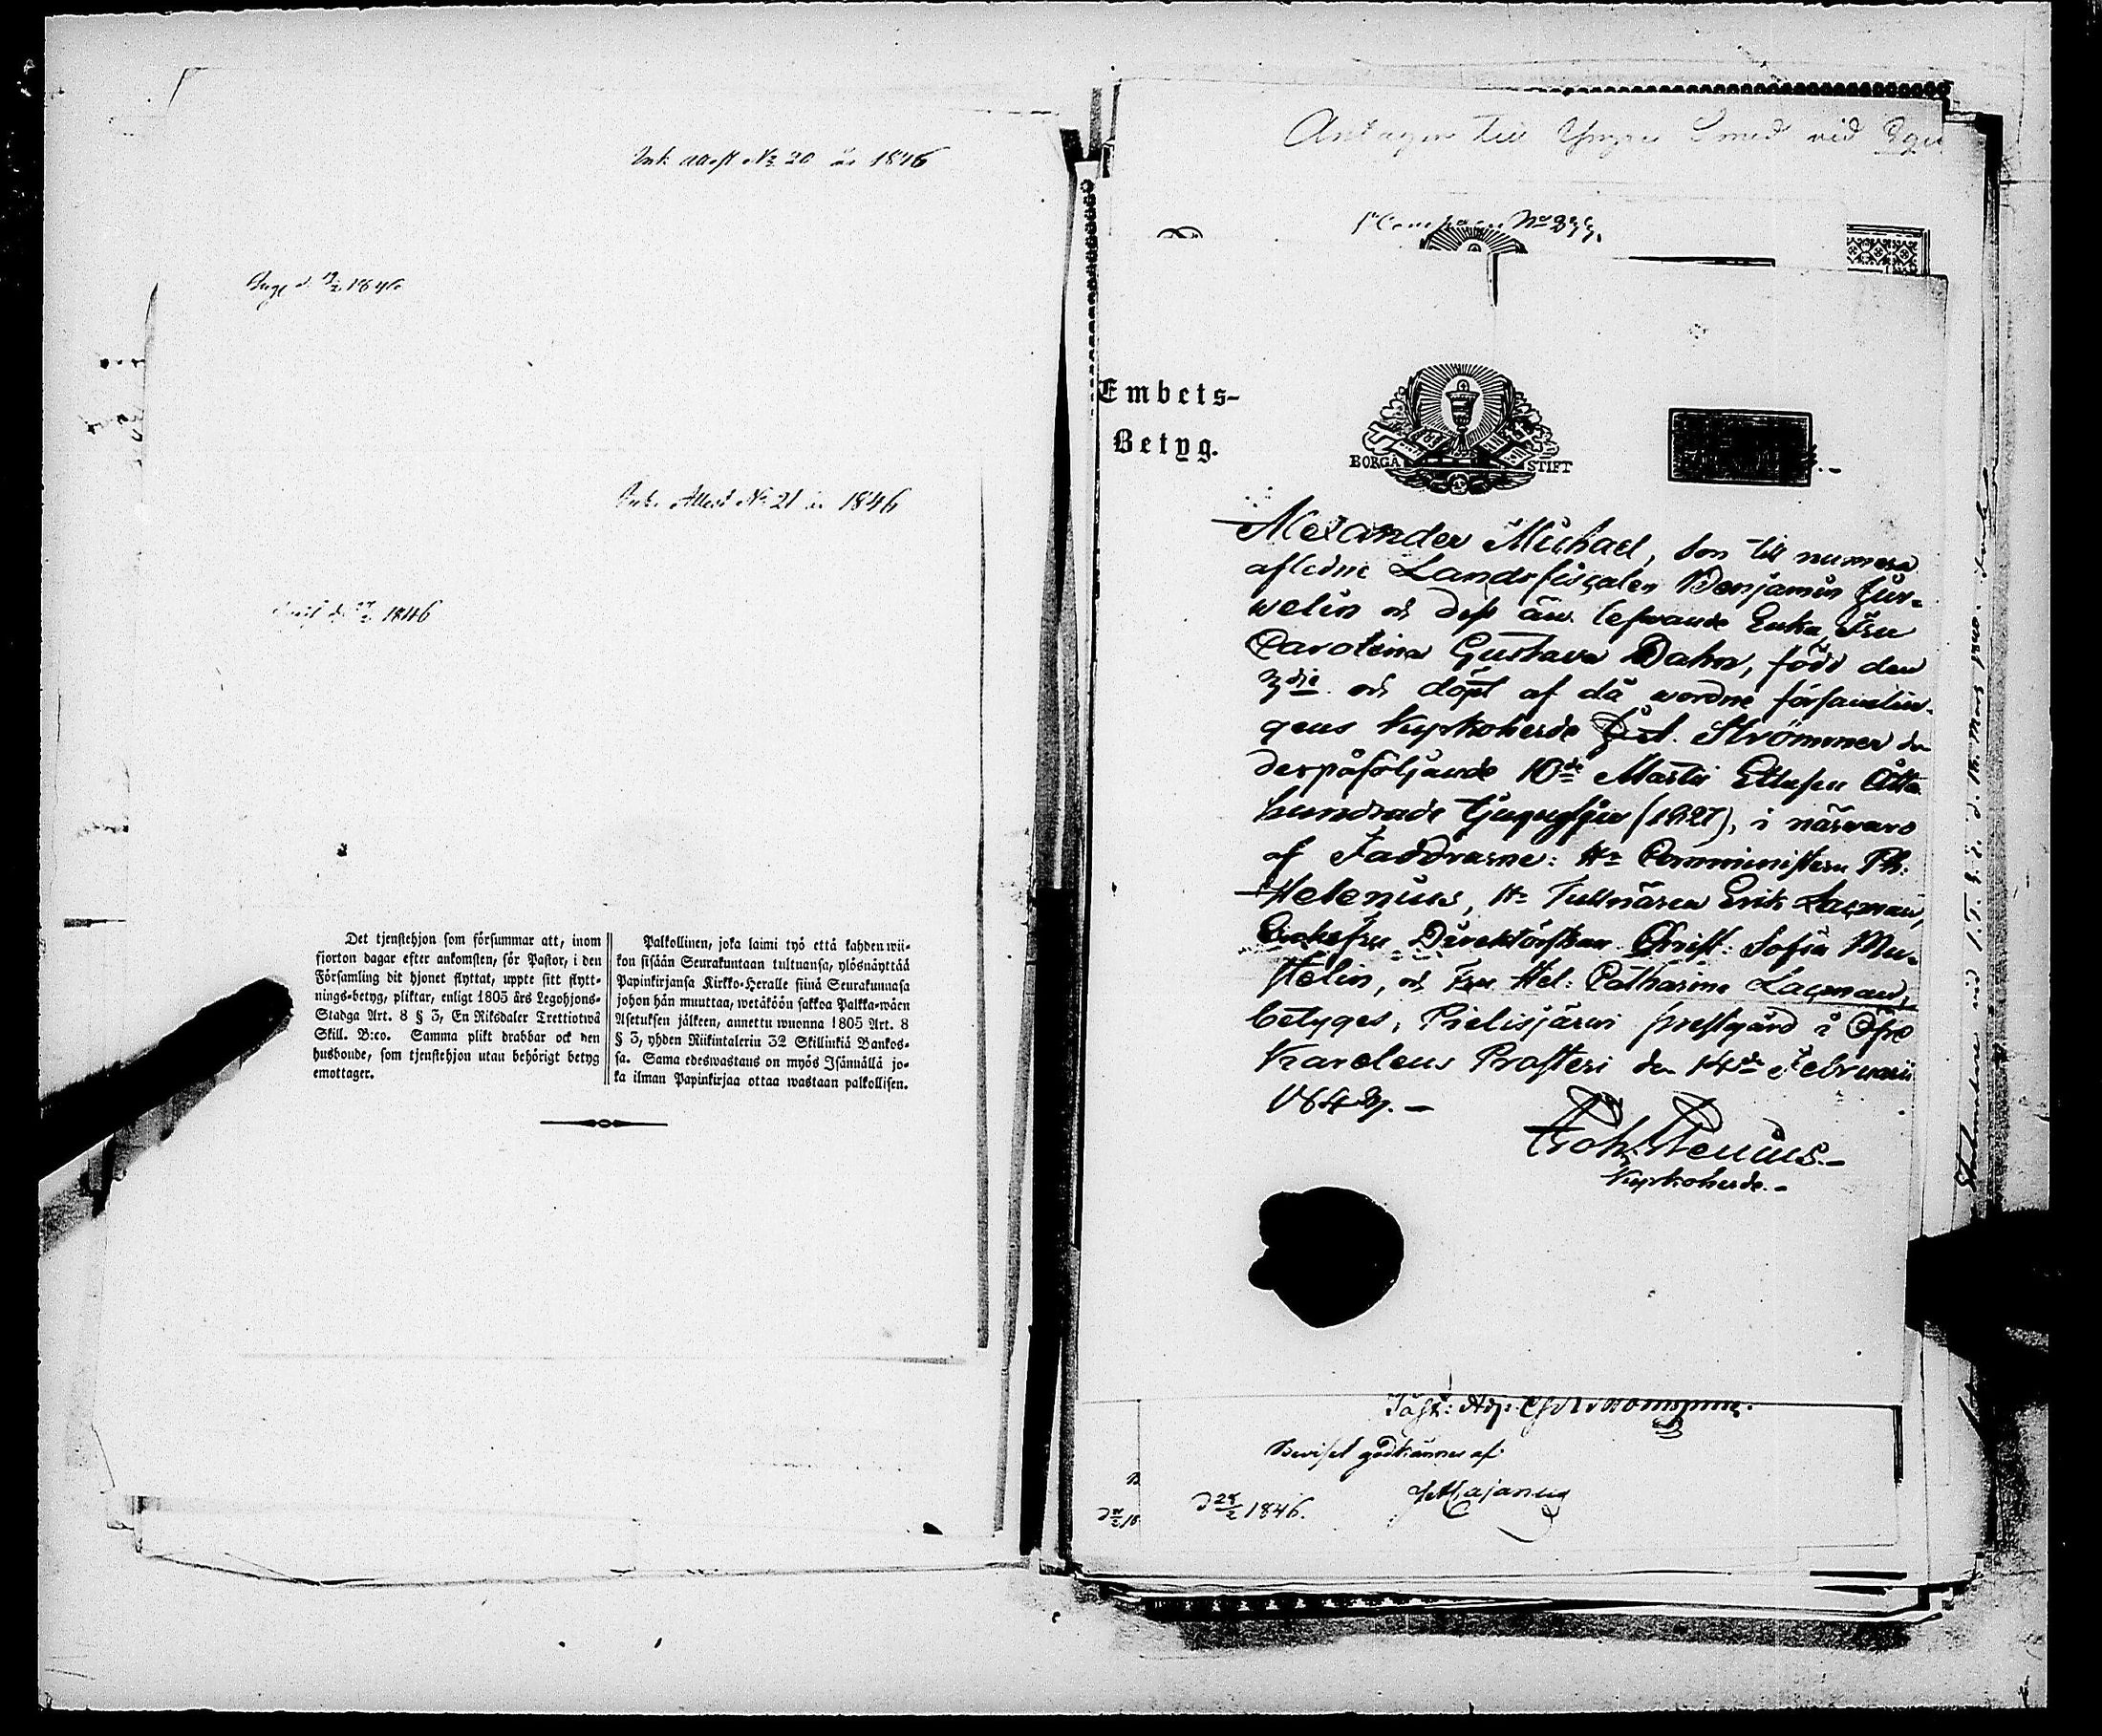 Ink. Attest No 20 år 1846
1846
Ink. Attest No 21 år 1846
1846
Det tjenstehjon som försummar att, inom
fiorton dagar efter ankomsten, för Pastor, i den
Församling dit hjonet flyttat, uppte sitt flytt-
nings-betyg, pliktar, enligt 1805 års Legohjons-
Stadga Art. 8 § 3, En Riksdaler Trettiotwå
Skill. B:co. Samma plikt drabbar ock den
husbonde, som tjenstehjon utan behörigt betyg
emottager.
Palkollinen, joka laimi lyö että kahden wii-
kon sisään Seurakuntaan tultuansa, ylösnäyttää
Papinkirjansa Kirkko-Heralle siinä Seurakunnasa
johon hän muuttaa, wetäköön sakkoa Palkka-wäen
Asetuksen jälkeen, annettu wuonna 1805 Art. 8
§ 3, yhden Riikintalerin 32 Skillinkiä Bankos-
sa. Sama edeswastaus on myös Isännällä jo-
ka ilman Papinkirjaa ottaa wastaan palkollisen.
Antagen till Yngre Smed vid
No 277.
Embets-
Betyg.
BORGÅ STIFT
Alexander Michael, son till numera
aflidne Landsfiscalen Benjamin Zur-
welin och dess än lefwande Enka, Fru
Carolina Gustava Dahn, född den
3dje och döpt af då wordne församlin-
gens Kyrkoherde Strömmer den
derpåföljande 10de Martii Ettusen Åtta
hundrade tjugusju (1827), i närwaro
af Faddrarne: Hr Comministern Th:
Helenius, Hr Tullnären Erik Lacman,
Enkefru Direktörskan Christ: Sofia Mu-
stelin, och Fru Hel: Catharina Lacman,
betyges, Pielisjärwi prestgård i Öfre
Karelens Prosteri den 14de Februarii
1842. –
Joh. Stenius. –
Kyrkoherde. –
Beviset godkännes af
J Cajanus
d 28/2 1846.